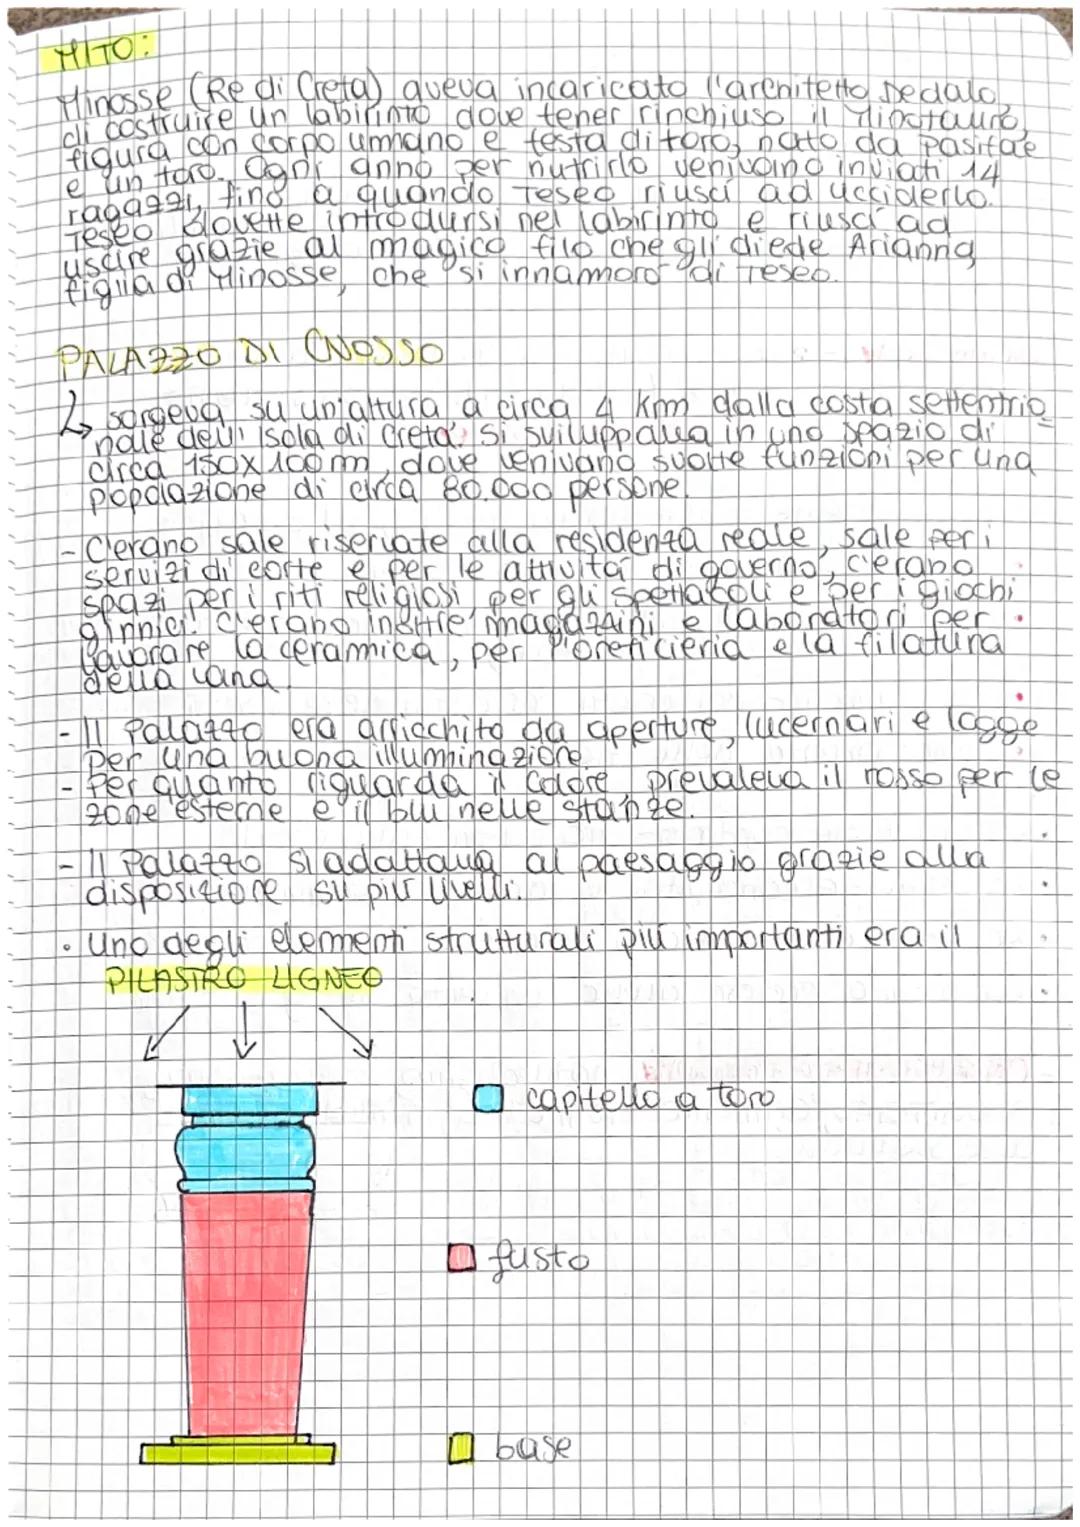 MITO:
Minosse (Re di Creta) aveva incaricato l'architetto Dedalo,
di costruire un labirinto dove tener rinchiuso il Minotauro,
figura con corpo ummano e testa di toro, nato da Pasifae
e un toro. Ogni anno per nutrirlo venivano inviati 14
ragazzi, fino a quando Teseo riuscì ad ucciderlo.
Teseo dovette introdursi nel labirinto e riuscì ad
uscire grazie al magico filo che gli diede Arianna,
figlia di Minosse, che si innamorò di Teseo.
PALAZZO DI CNOSSO
↳ sorgeva su un'altura a circa 4 km dalla costa settentrio
nale dell'isola di Creta. Si sviluppava in uno spazio di
circa 150x100 m, dove venivano svolte funzioni per una
popolazione di circa 80.000 persone.
- C'erano sale riservate alla residenza reale, sale per i
servizi di corte e per le attività di governo, c'erano
spazi per i riti religiosi, per gli spettacoli e per i giochi
ginnici. C'erano inoltre magazzini e laboratori per
lavorare la ceramica, per l'oreficieria e la filatura
della lana.
- Il Palazzo era arricchito da aperture, lucernari e logge
per una buona illuminazione.
- Per quanto riguarda il colore, prevaleva il rosso per le
zone esterne e il blu nelle stanze.
- Il Palazzo si adattava al paesaggio grazie alla
disposizione su più livelli.
• Uno degli elementi strutturali più importanti era il
PILASTRO LIGNEO
capitello a toro
fusto
base